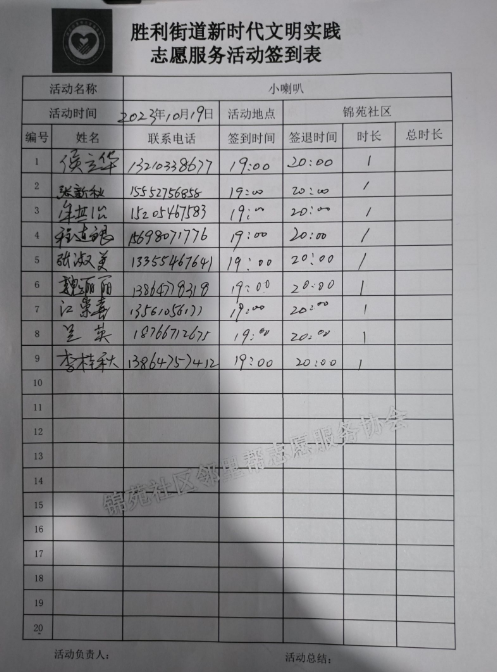 胜利街道新时代文明实践
志愿服务活动签到表
活动名称 小喇叭
活动时间 2023年10月19日 活动地点 锦苑社区
编号 姓名 联系电话 签到时间 签退时间 时长 总时长
1 侯立华 13210338677 19:00 20:00 1
2 张新秋 15552756855 19:00 20:00 1
3 15205467583 19:00 20:00 1
4 程建银 15698071776 19:00 20:00 1
5 张淑美 13355467641 19:00 20:00 1
6 魏丽丽 13864778318 19:00 20:00 1
7 江荣喜 13561056177 19:00 20:00 1
8 兰英 18766712675 19:00 20:00 1
9 李桂秋 13864757412 19:00 20:00 1
10
11
12
13
14
15
16
17
18
19
20
锦苑社区邻里帮志愿服务协会
活动负责人： 活动总结：